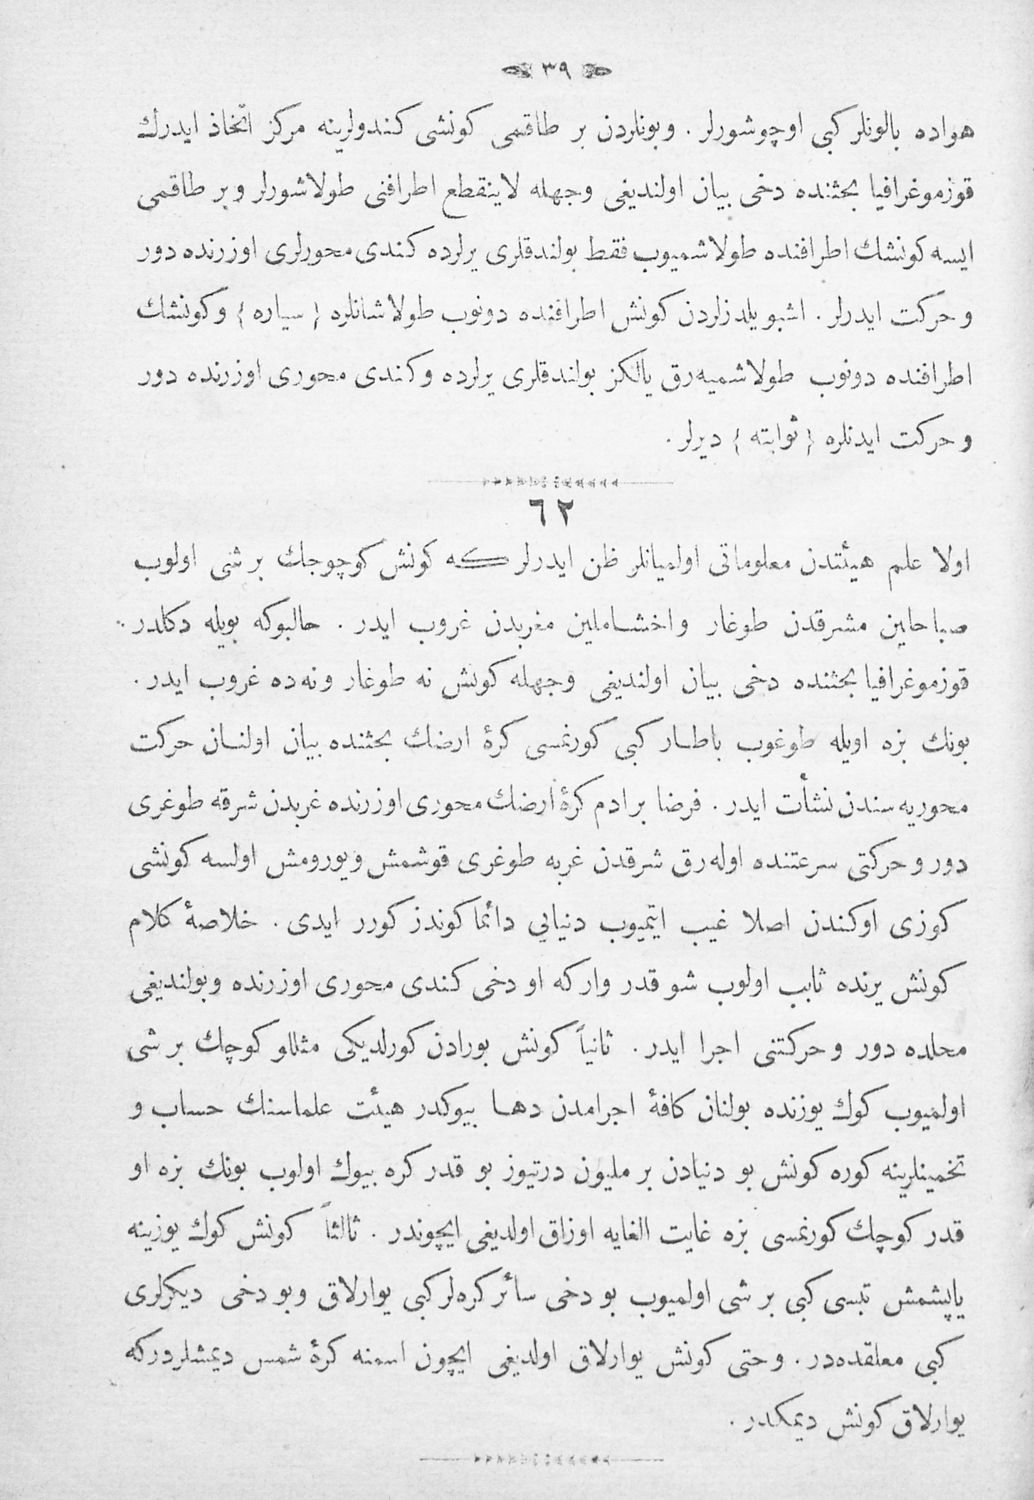 ٣٩
هواده بالونلر كبی اوچوشورلر . وبونلردن بر طاقمی كونشی كندولرینه مركز اتخاذ ایدرك
قوزموغرافیا بحثنده دخی بیان اولندیغی وجهله لاینقطع اطرافنی طولاشورلر وبر طاقمی
ایسه كونشك اطرافنده طولاشمیوب فقط بولندقلری یرلرده كندی محورلری اوزرنده دور
و حركت ایدرلر . اشبو یلدزلردن كونش اطرافنده دونوب طولاشانلره { سیاره } وكونشك
اطرافنده دونوب طولاشمیه‌رق یالكز بولندقلری یرلرده وكندی محوری اوزرنده دور
و حركت ایدنلره { ثوابته } دیرلر .
٦٢
اولا علم هیئتدن معلوماتی اولمیانلر ظن ایدرلر كه كونش كوچوجك بر شی اولوب
صباحلین مشرقدن طوغار واخشاملین مغربدن غروب ایدر . حالبوكه بویله دكلدر .
قوزموغرافیا بحثنده دخی بیان اولندیغی وجهله كونش نه طوغار ونه‌ده غروب ایدر .
بونك بزه اویله طوغوب باطار كبی كورنمسی كرهٔ ارضك بحثنده بیان اولنان حركت
محوریه سندن نشأت ایدر . فرضا برادم كرهٔ ارضك محوری اوزرنده غربدن شرقه طوغری
دور وحركتی سرعتنده اوله‌رق شرقدن غربه طوغری قوشمش ویورومش اولسه كونشی
كوزی اوكندن اصلا غیب ایتمیوب دنیایی دائما كوندز كورر ایدی . خلاصهٔ كلام
كونش یرنده ثابب اولوب شو قدر واركه او دخی كندی محوری اوزرنده وبولندیغی
محلده دور وحركتنی اجرا ایدر . ثانیاً كونش بورادن كورلدیكی مثللو كوچك بر شی
اولمیوب كوك یوزنده بولنان كافهٔ اجرامدن دها بیوكدر هیئت علماسنك حساب و
تخمینلرینه كوره كونش بو دنیادن بر ملیون درتیوز بو قدر كره بیوك اولوب بونك بزه او
قدر كوچك كورنمسی بزه غایت الغایه اوزاق اولدیغی ایچوندر . ثالثاً كونش كوك یوزینه
یاپشمش تبسی كبی بر شی اولمیوب بو دخی سائر كره‌لر كبی یوارلاق وبو دخی دیكرلری
كبی معلقده‌در . وحتی كونش یوارلاق اولدیغی ایچون اسمنه كرهٔ شمس دیمشلردركه
یوارلاق كونش دیمكدر .